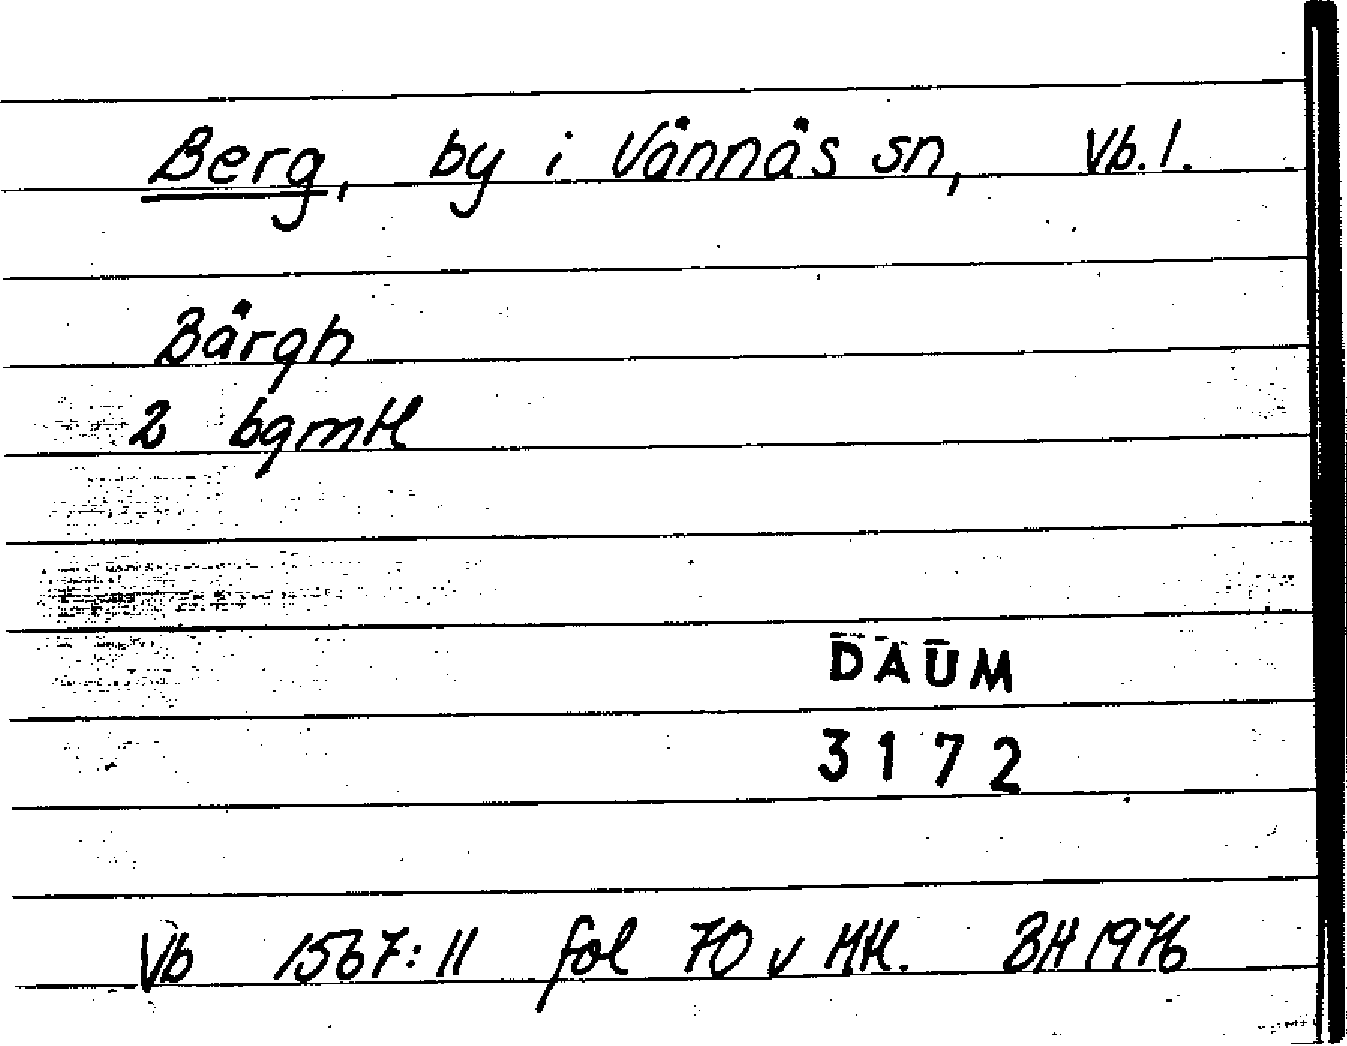 Berg, by i Vännäs sn, Vb. l.
Bärgh
2 bgmtl
DAUM
3172
Vb 1567:11 fol 70 v HH. BH 1976